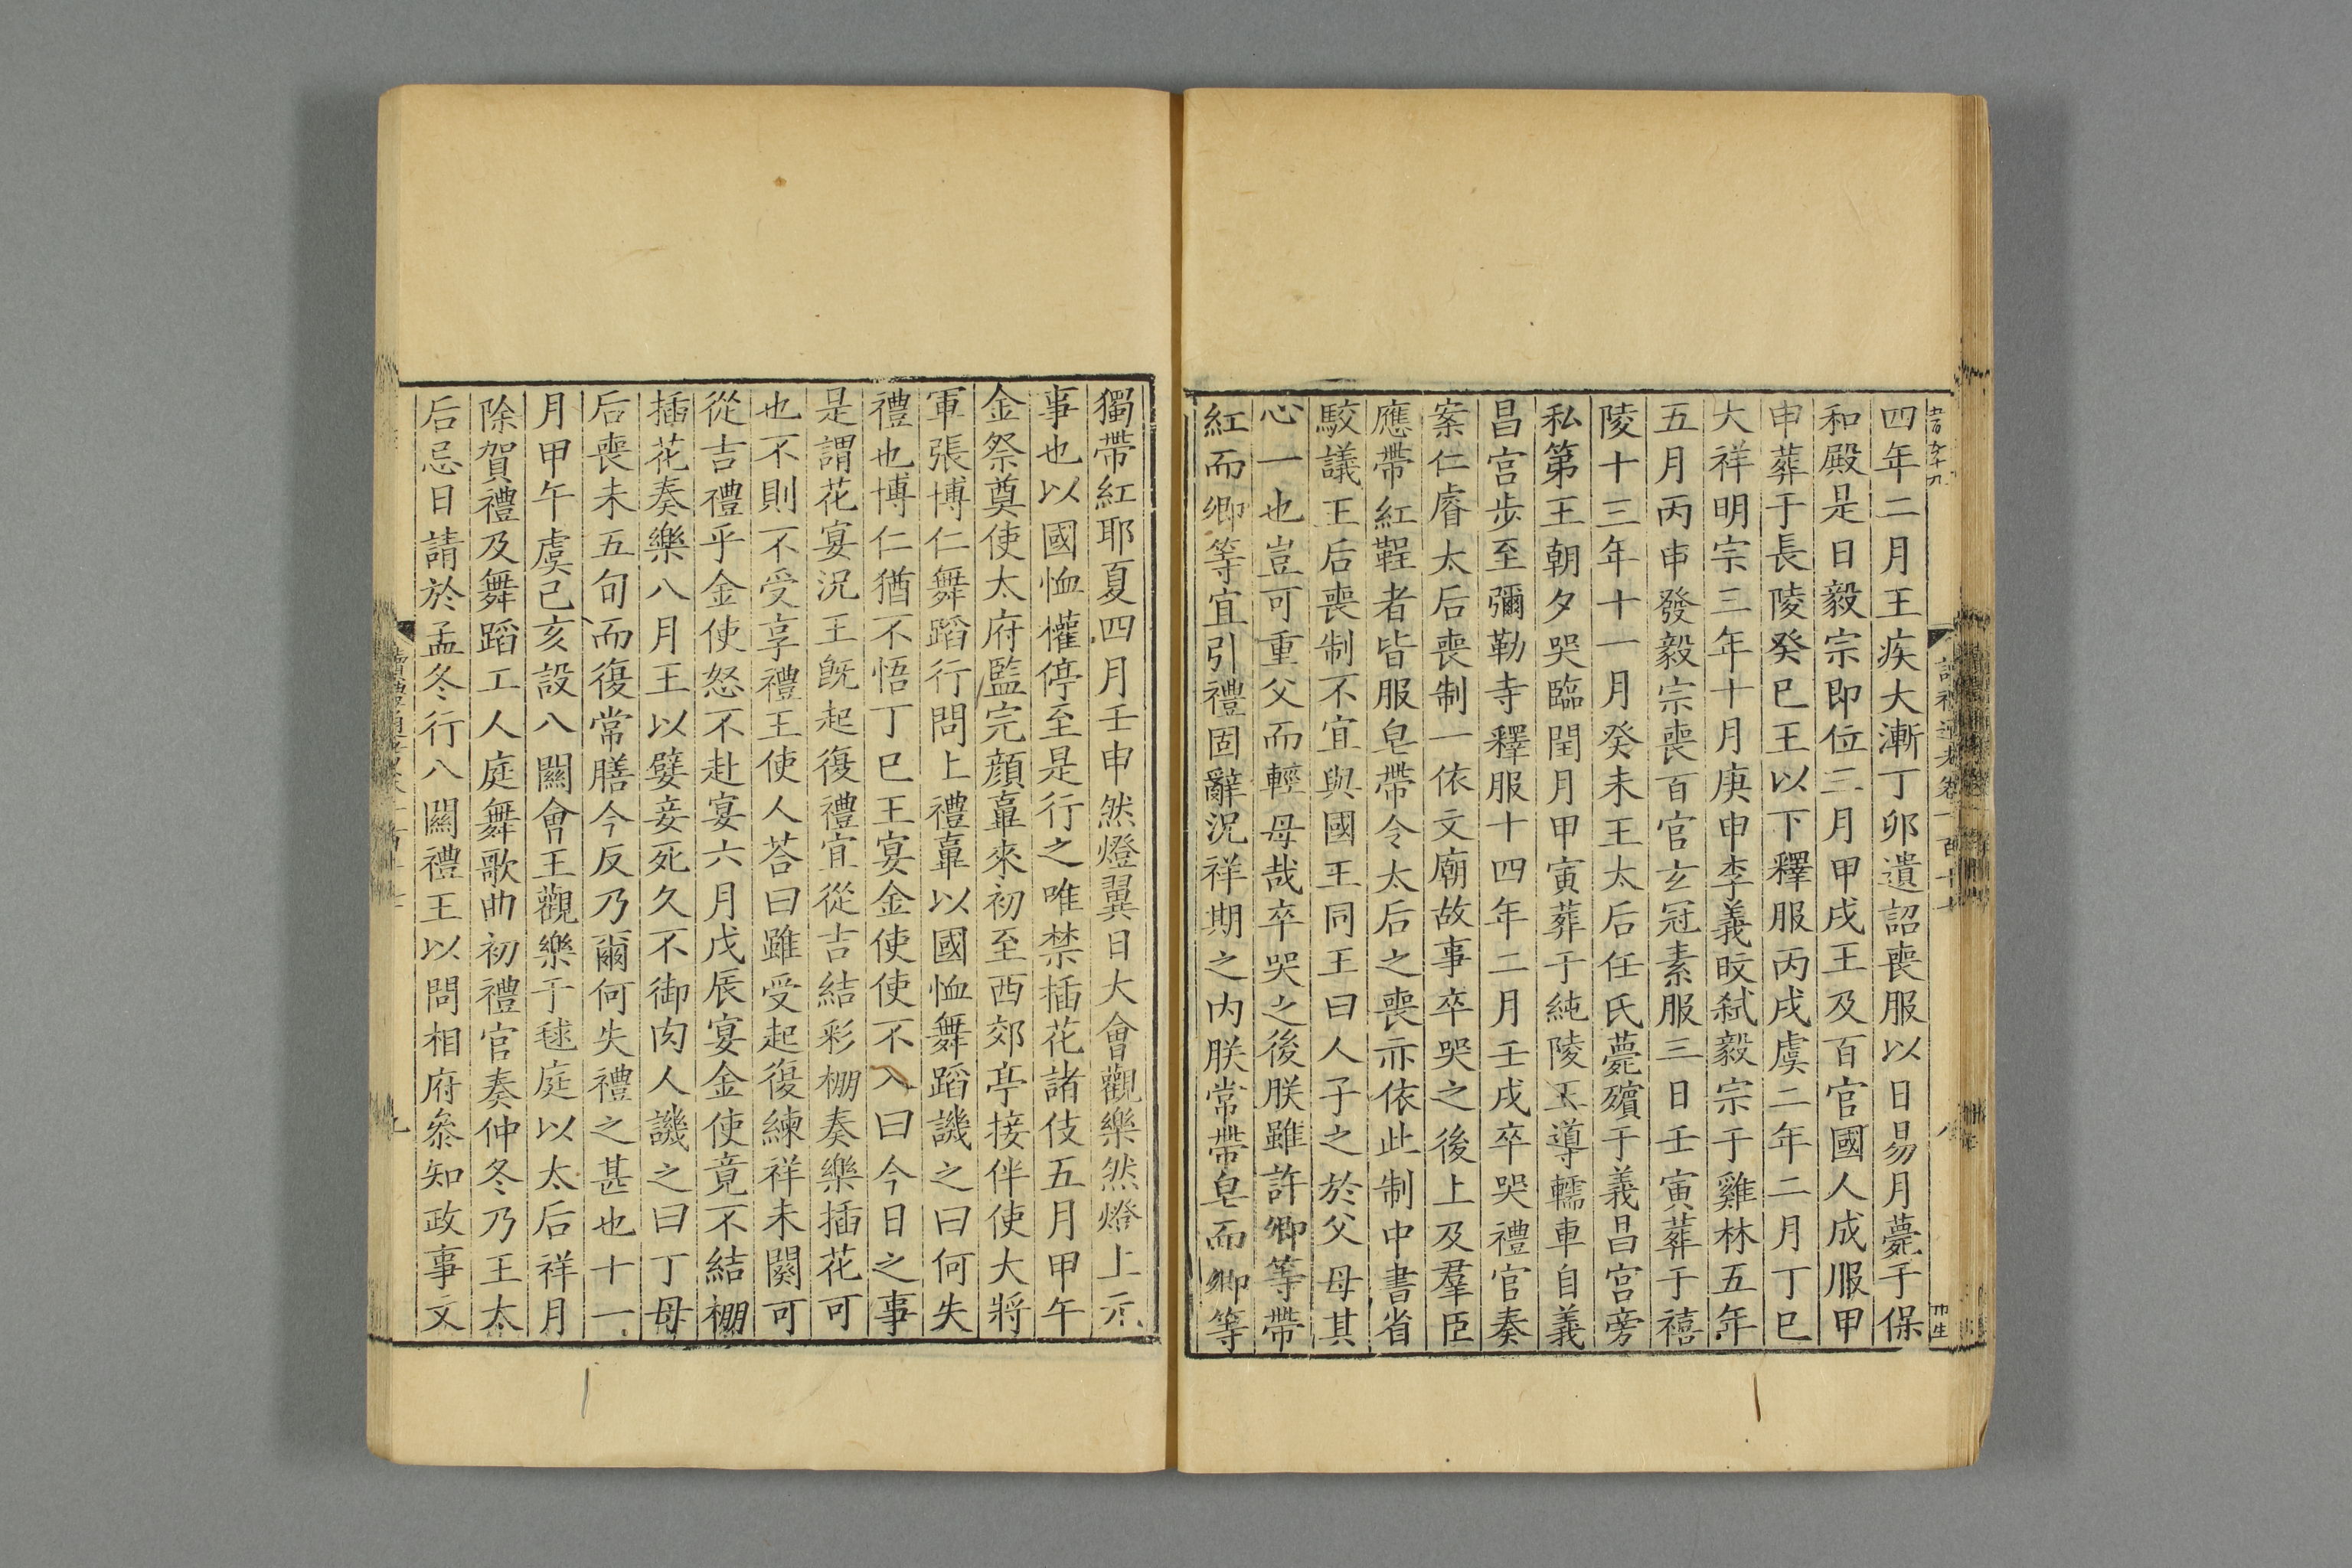 四年二月王疾大漸丁卯遺詔喪服以日易月薨于保
和殿是日毅宗即位三月甲戌王及百官國人成服甲
申葬于長陵癸巳王以下釋服丙戌虞二年二月丁巳
大祥明宗三年十月庚申李義旼弑毅宗于雞林五年
五月丙申發毅宗喪百官玄冠素服三日壬寅葬于禧
陵十三年十一月癸未王太后任氏薨殯于義昌宮旁
私第王朝夕哭臨閏月甲寅葬于純陵王導轜車自義
昌宮步至彌勒寺釋服十四年二月壬戌卒哭禮官奏
案仁睿太后喪制一依文廟故事卒哭之後上及羣臣
應帶紅鞓者皆服皂帶令太后之喪亦依此制中書省
駮議王后喪制不宜與國王同王曰人子之於父母其
心一也豈可重父而輕母哉卒哭之後朕雖許卿等帶
紅而卿等宜引禮固辭況祥期之內朕常帶皂而卿等
獨帶紅耶夏四月壬申然燈翼日大會觀樂然燈上元
事也以國恤權停至是行之唯禁插花諸伎五月甲午
金祭奠使太府監完顔䢼來初至西郊亭接伴使大將
軍張博仁舞蹈行問上禮䢼以國恤舞蹈譏之曰何失
禮也博仁猶不悟丁巳王宴金使使不入曰今日之事
是謂花宴況王旣起復禮宜從吉結彩棚奏樂插花可
也不則不受享禮王使人荅曰雖受起復練祥未闋可
從吉禮乎金使怒不赴宴六月戊辰宴金使竟不結棚
插花奏樂八月王以嬖妾死久不御肉人譏之曰丁母
后喪未五旬而復常膳今反乃爾何失禮之甚也十一
月甲午虞己亥設八關會王觀樂于毬庭以太后祥月
除賀禮及舞蹈工人庭舞歌曲初禮官奏仲冬乃王太
后忌日請於孟冬行八關禮王以問相府叅知政事文